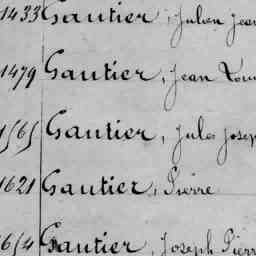 1433 Gautier, Julien Jean
1479 Gautier, Jean Lou
1565 Gautier, Jules Josep
1621 Gautier, Pierre
1654 Gautier, Joseph Pierr